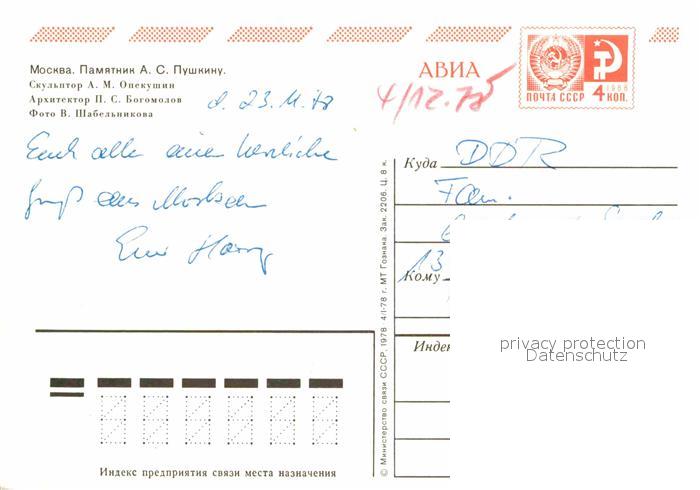 АВИА
1966
ПОЧТА СССР 4 КОП.
Москва. Памятник А. С. Пушкину.
Скульптор А. М. Опекушин
Архитектор П. С. Богомолов
Фото В. Шабельникова
d. 23.11.78
4/12.78
Euch alle eine herzliche
Gruß aus Moskau
Euer Harry
Куда DDR
Fam.
13
Кому
Индек
privacy protection
Datenschutz
© Министерство связи СССР, 1978 4/I-78 г. МТ Гознака. Зак. 2206. Ц. 8 к.
Индекс предприятия связи места назначения